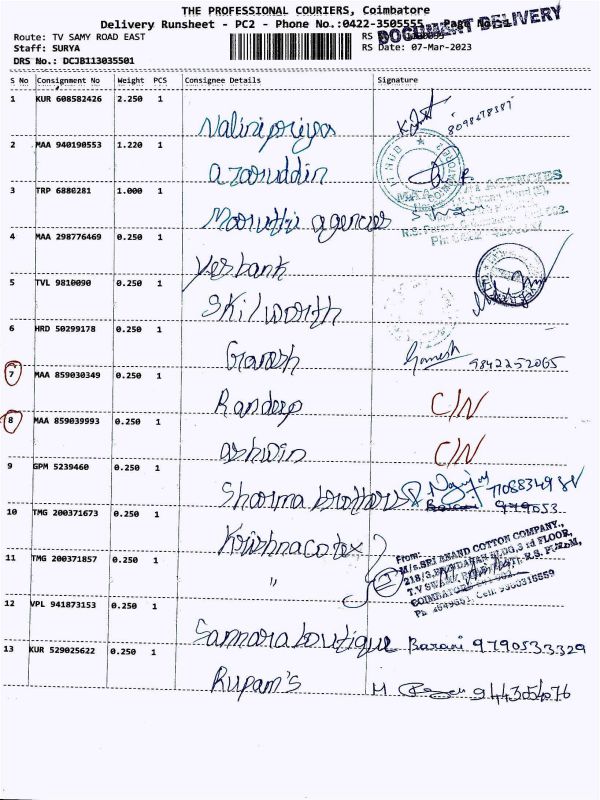 THE PROFESSIONAL COURIERS, Coimbatore
Delivery Runsheet - PC2 - Phone No.:0422-3505555
DOCUMENT DELIVERY
Route: TV SAMY ROAD EAST
Staff: SURYA
RS Date: 07-Mar-2023
DRS No.: DCJB113035501
S No Consignment No Weight PCS Consignee Details Signature
1 KUR 608582426 2.250 1
Nalinipriya
2 MAA 940190553 1.220 1
azaruddin
3 TRP 6880281 1.000 1
Maruthi agencies
AGENCIES
4 MAA 298776469 0.250 1
Yes bank
5 TVL 9810090 0.250 1
Skilworth
6 HRD 50299178 0.250 1
Ganesh Ganesh 9842252065
7 MAA 859030349 0.250 1
Randeep C/N
8 MAA 859039993 0.250 1
ashwin C/N
9 GPM 5239460 0.250 1
Sharma brothers
10 TMG 200371673 0.250 1
Krishna cotex
From:
M/s.SRI ANAND COTTON COMPANY,
11 TMG 200371857 0.250 1
"
12 VPL 941873153 0.250 1
Sannara boutique Barani 9790533329
13 KUR 529025622 0.250 1
Rupam's M